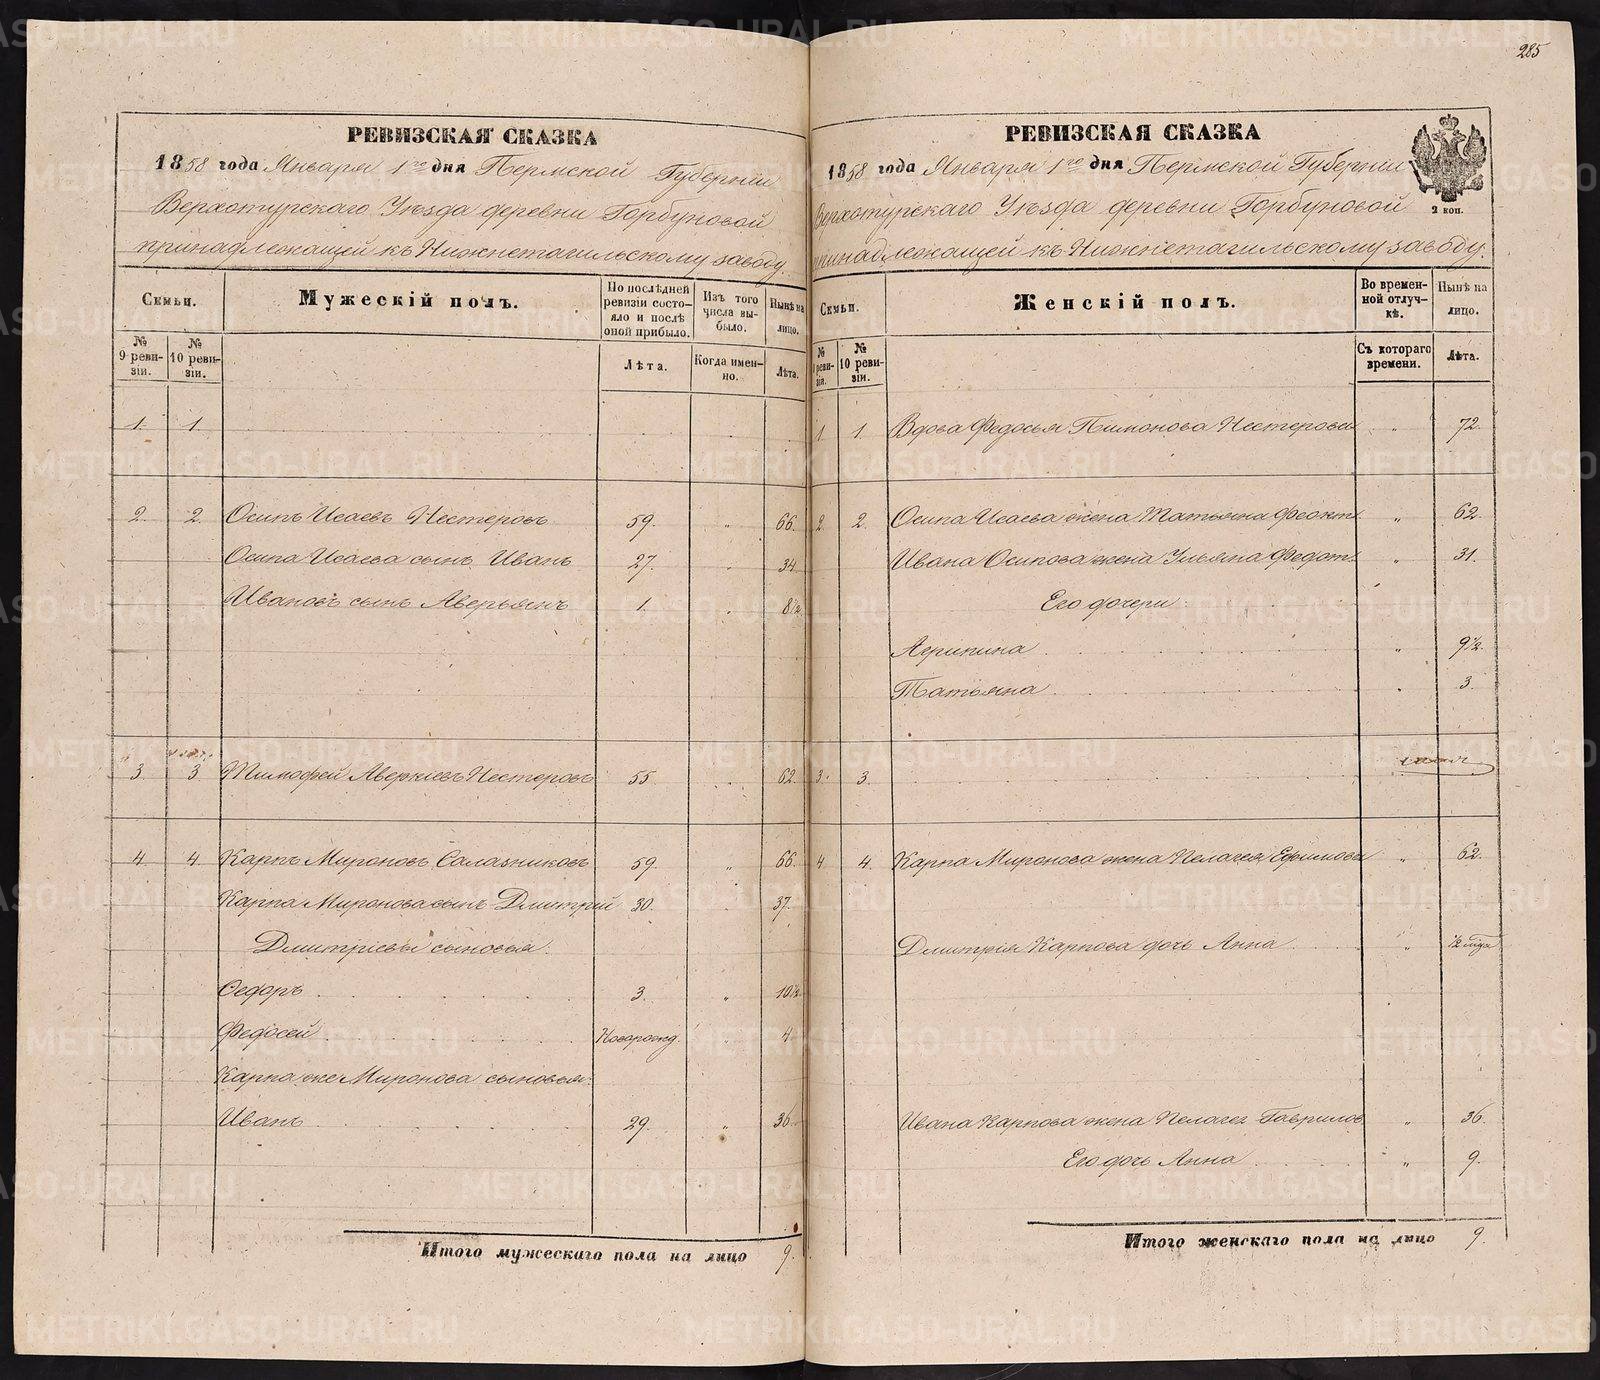 285
РЕВИЗСКАЯ СКАЗКА
1858 года Января 1го дня Пермской Губернии
Верхотурскаго Уѣзда деревни Горбуновой
принадлежащей къ Нижнетагильскому заводу.
Семьи.
Мужескій полъ.
По послѣдней ревизіи состояло и послѣ оной прибыло.
Изъ того числа выбыло.
Нынѣ на лицо.
№ 9 ревизіи.
№ 10 ревизіи.
Лѣта.
Когда именно.
Лѣта.
1. 1.
2. 2. Осипъ Исаевъ Нестеровъ 59. „ 66.
Осипа Исаева сынъ Иванъ 27. „ 34.
Ивановъ сынъ Аверьянъ 1. „ 8½
3. 3. Тимофей Аверкіевъ Нестеровъ 55 „ 62.
4. 4. Карпъ Мироновъ Салазниковъ 59. „ 66.
Карпа Миронова сынъ Дмитрій 30. „ 37.
Дмитріевы сыновья:
Ѳедоръ 3. „ 10½
Федосей Новорожд. „ 4
Карпа же Миронова сыновья:
Иванъ 29. „ 36.
Итого мужескаго пола на лицо 9.
РЕВИЗСКАЯ СКАЗКА
1858 года Января 1го дня Пермской Губерніи
2 коп.
Верхотурскаго Уѣзда деревни Горбуновой
принадлежащей къ Нижнетагильскому заводу.
Семьи.
Женскій полъ.
Во временной отлучкѣ.
Нынѣ на лицо.
№ 9 ревизіи.
№ 10 ревизіи.
Съ котораго времени.
Лѣта.
1. 1. Вдова Федосья Пимонова Нестерова „ 72.
2. 2. Осипа Исаева жена Татьяна Феокт. „ 62.
Ивана Осипова жена Ульяна Федот. „ 31.
Его дочери:
Агрипина „ 9½.
Татьяна „ 3.
3. 3.
4 4. Карпа Миронова жена Пелагея Ефимова „ 62.
Дмитрія Карпова дочь Анна „ ½ года
Ивана Карпова жена Пелагея Гаврилов. „ 36.
Его дочь Анна „ 9.
Итого женскаго пола на лицо 9.
METRIKI.GASO-URAL.RU